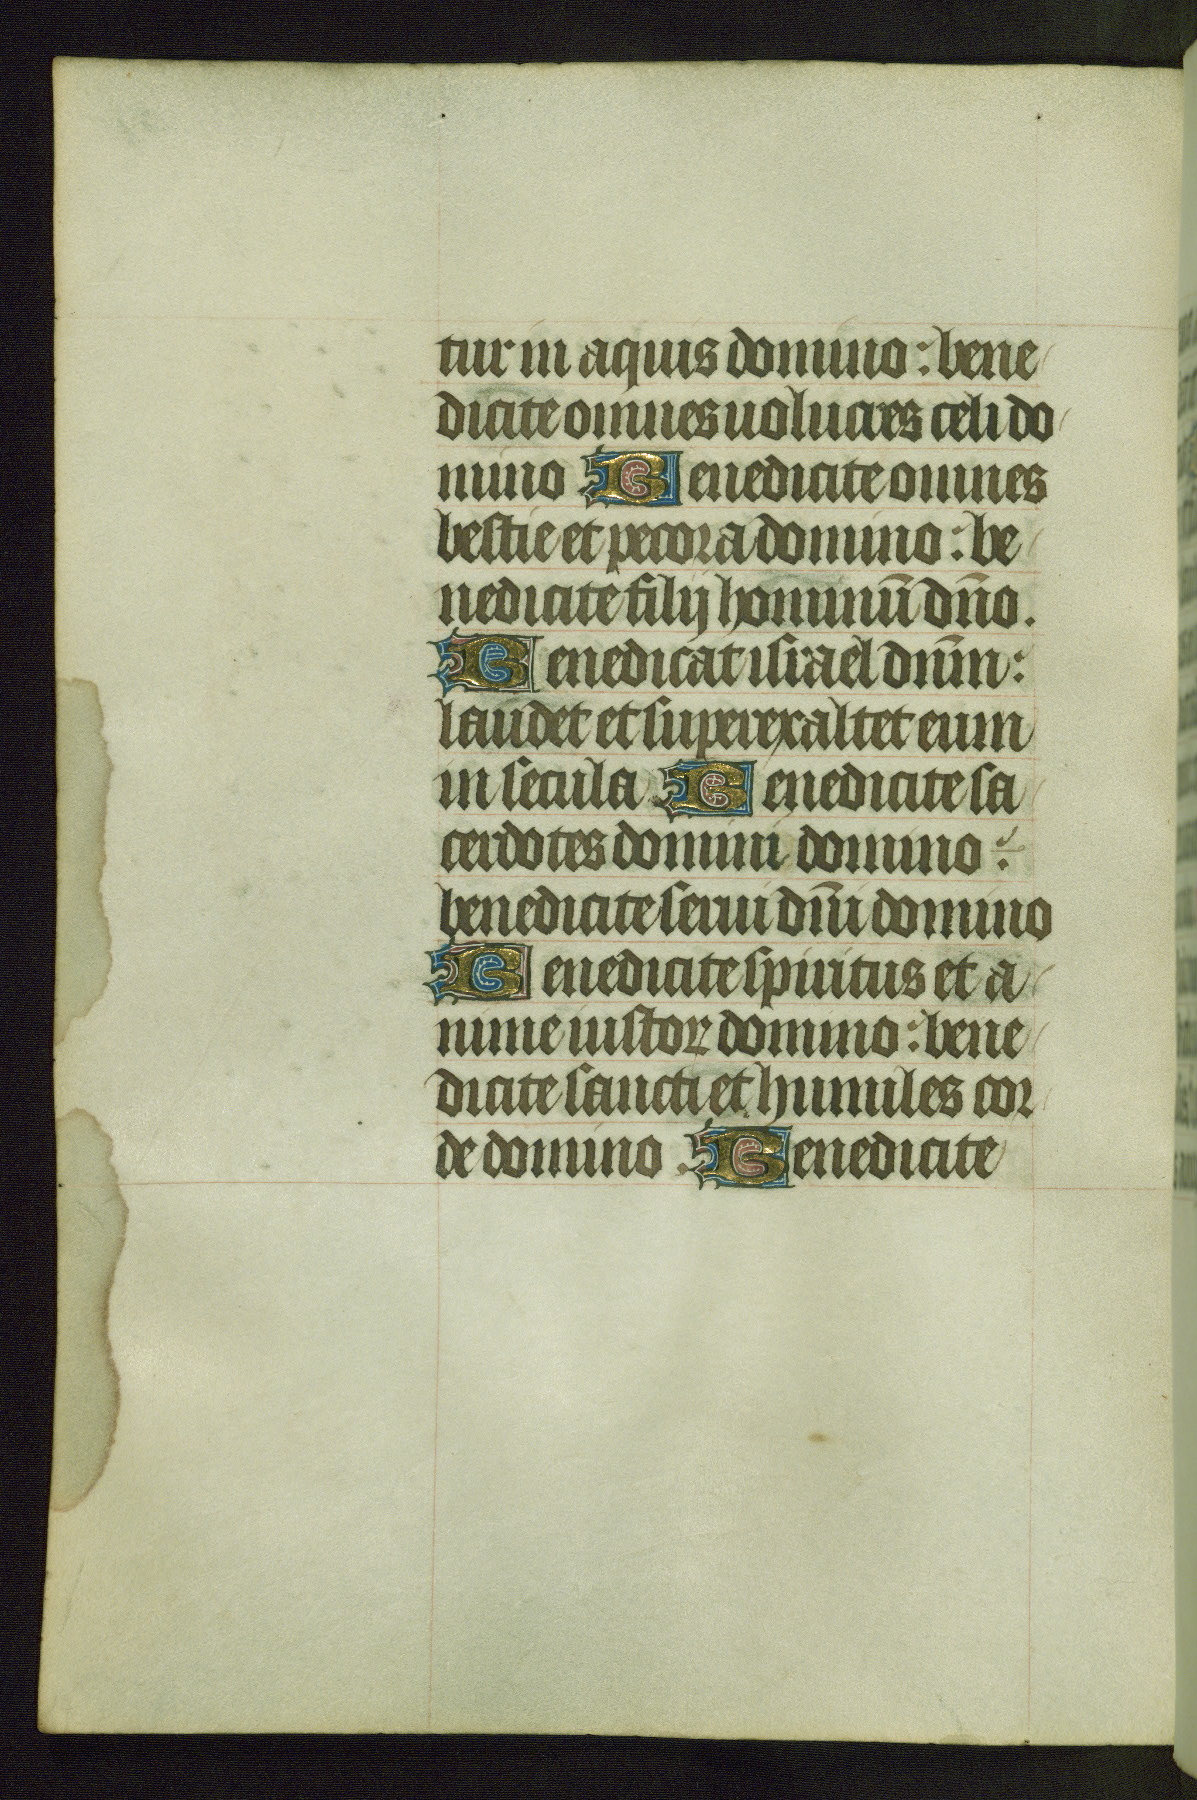 tur in aquis domino : bene
dicite omnes uolucres celi do
mino Benedicite omnes
bestie et pecora domino : be
nedicite filij hominū dn̄o.
Benedicat israel dn̄m :
laudet et superexaltet eum
in secula Benedicite sa
cerdotes domini domino :
benedicite serui dn̄i domino
Benedicite spiritus et a
nime iustoꝝ domino : bene
dicite sancti et humiles cor
de domino . Benedicite